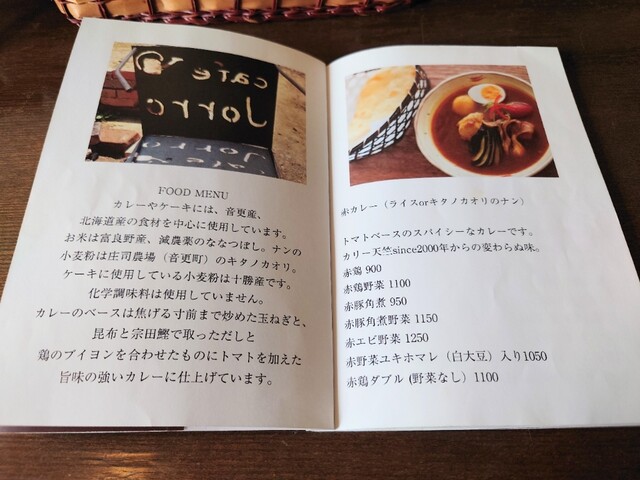 cafe
Jorro
Jorro
cafe
FOOD MENU
カレーやケーキには、音更産、
北海道産の食材を中心に使用しています。
お米は富良野産、減農薬のななつぼし。ナンの
小麦粉は庄司農場（音更町）のキタノカオリ。
ケーキに使用している小麦粉は十勝産です。
化学調味料は使用していません。
カレーのベースは焦げる寸前まで炒めた玉ねぎと、
昆布と宗田鰹で取っただしと
鶏のブイヨンを合わせたものにトマトを加えた
旨味の強いカレーに仕上げています。
赤カレー（ライスorキタノカオリのナン）
トマトベースのスパイシーなカレーです。
カリー天竺since2000年からの変わらぬ味。
赤鶏 900
赤鶏野菜 1100
赤豚角煮 950
赤豚角煮野菜 1150
赤エビ野菜 1250
赤野菜ユキホマレ（白大豆）入り1050
赤鶏ダブル (野菜なし）1100